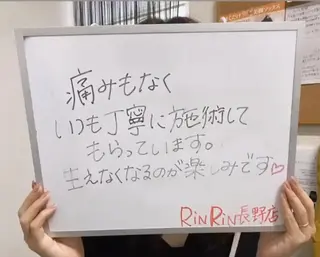 痛みもなく
いつも丁寧に施術して
もらっています。
生えなくなるのが楽しみです♡
RinRin長野店